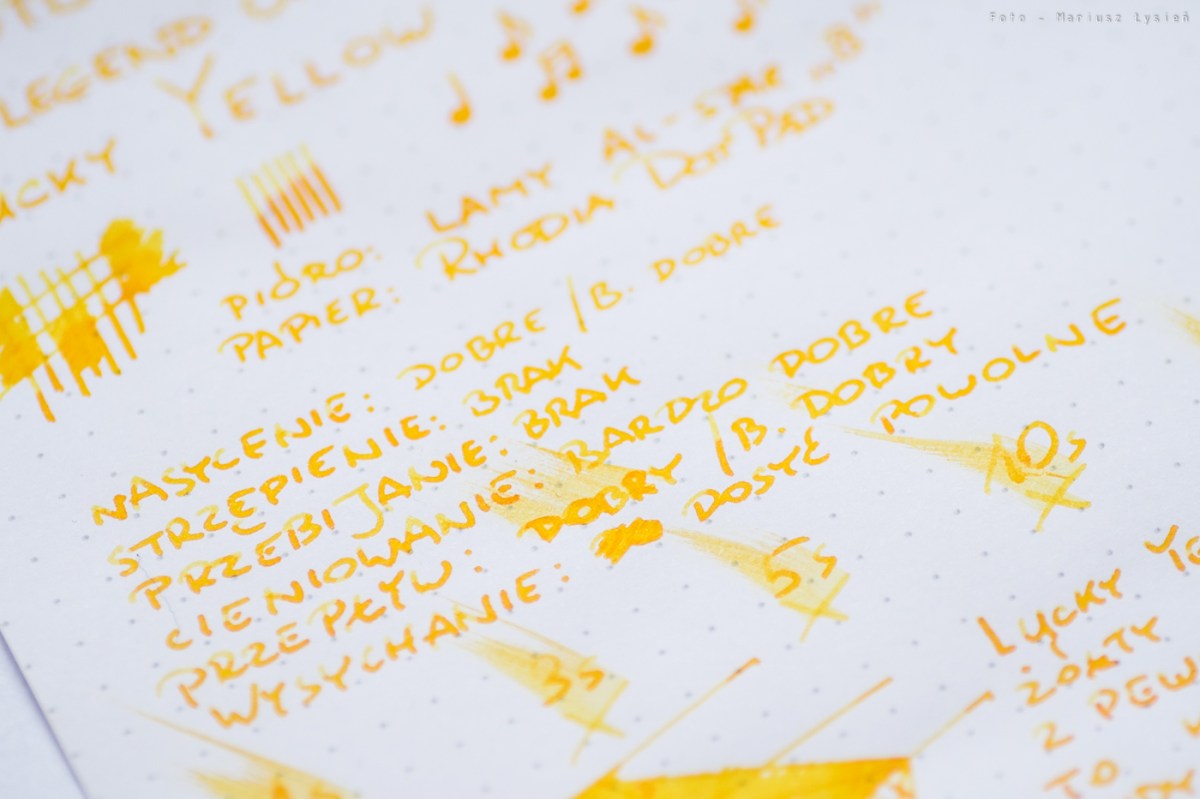 Foto - Mariusz Łysień
LEGEND
YELLOW
PIÓRO: LAMY AL-STAR „B"
PAPIER: RHODIA DOT PAD
NASYCENIE: DOBRE / B. DOBRE
STRZĘPIENIE: BRAK
PRZEBIJANIE: BRAK
CIENIOWANIE: BARDZO DOBRE
PRZEPŁYW: DOBRY / B. DOBRY
WYSYCHANIE: DOSYĆ POWOLNE
3s 5s 10s
LUCKY
ŻÓŁTY
Z
TO